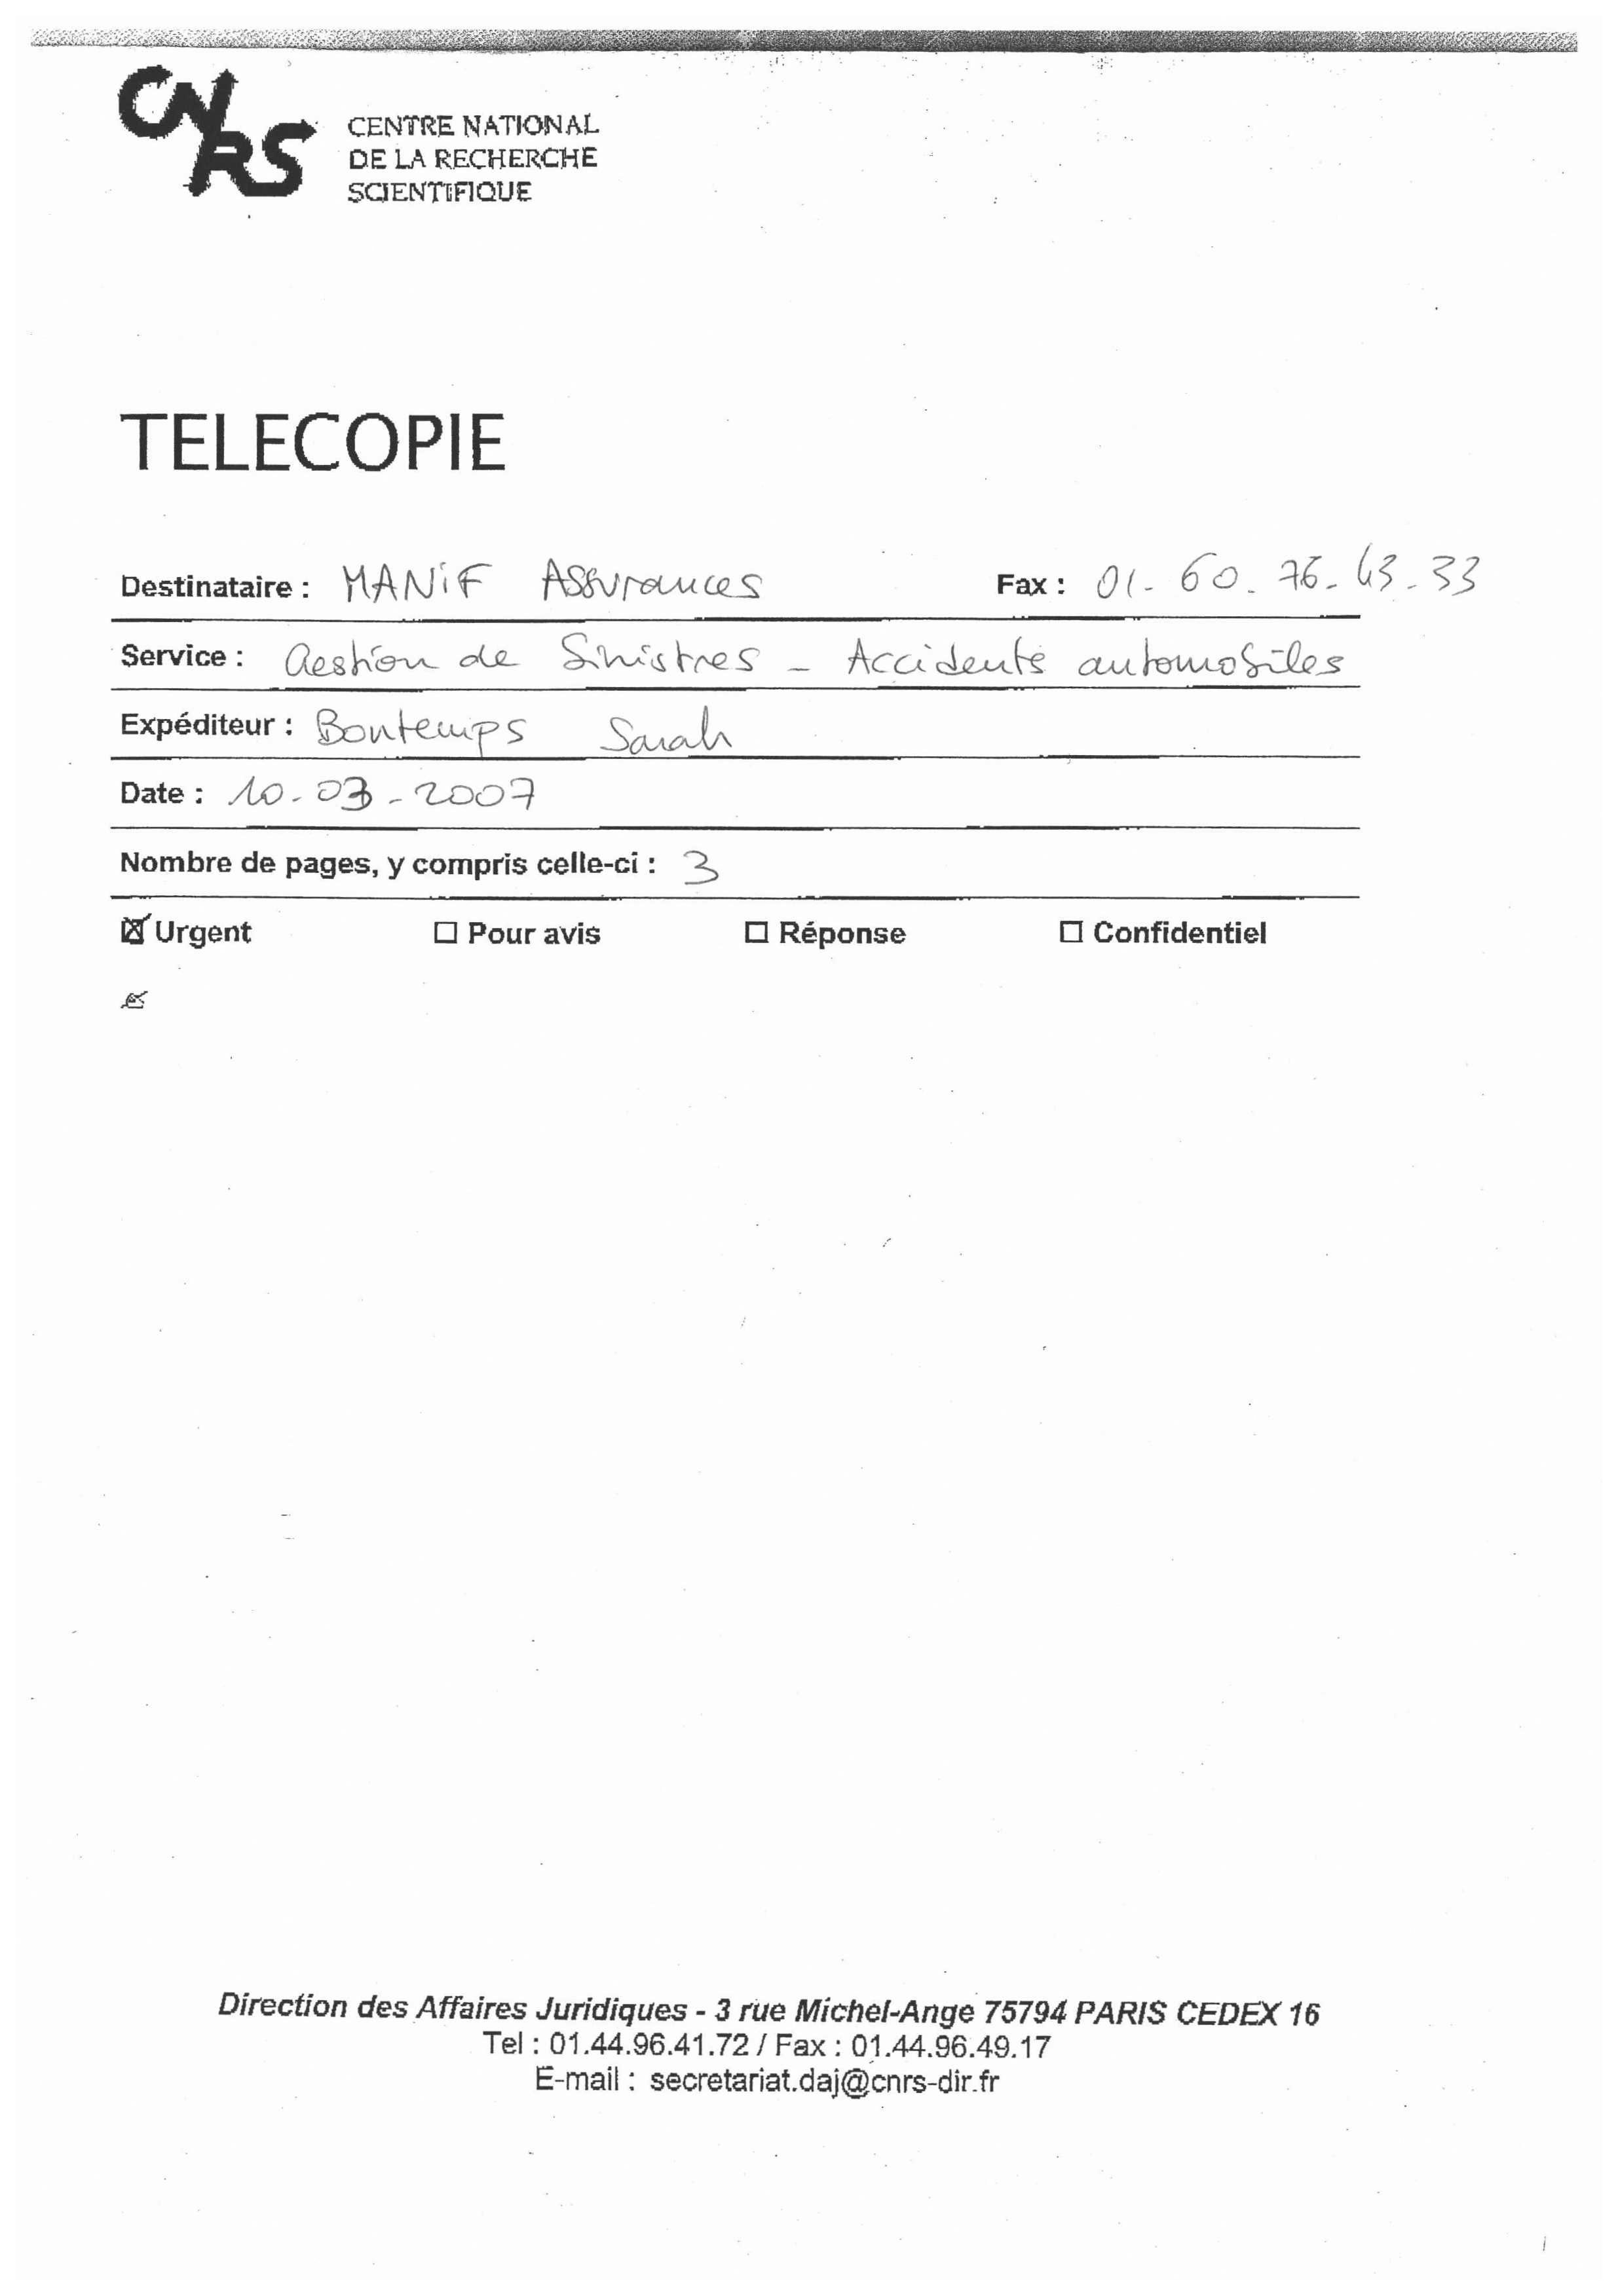 CNRS
CENTRE NATIONAL
DE LA RECHERCHE
SCIENTIFIQUE
TELECOPIE
Destinataire : MANiF Assurances Fax : 01-60.76.43.33
Service : Gestion de Sinistres - Accidents automobiles
Expéditeur : Bontemps Sarah
Date : 10-03-2007
Nombre de pages, y compris celle-ci : 3
☒ Urgent ☐ Pour avis ☐ Réponse ☐ Confidentiel
Direction des Affaires Juridiques - 3 rue Michel-Ange 75794 PARIS CEDEX 16
Tel : 01.44.96.41.72 / Fax : 01.44.96.49.17
E-mail : secretariat.daj@cnrs-dir.fr